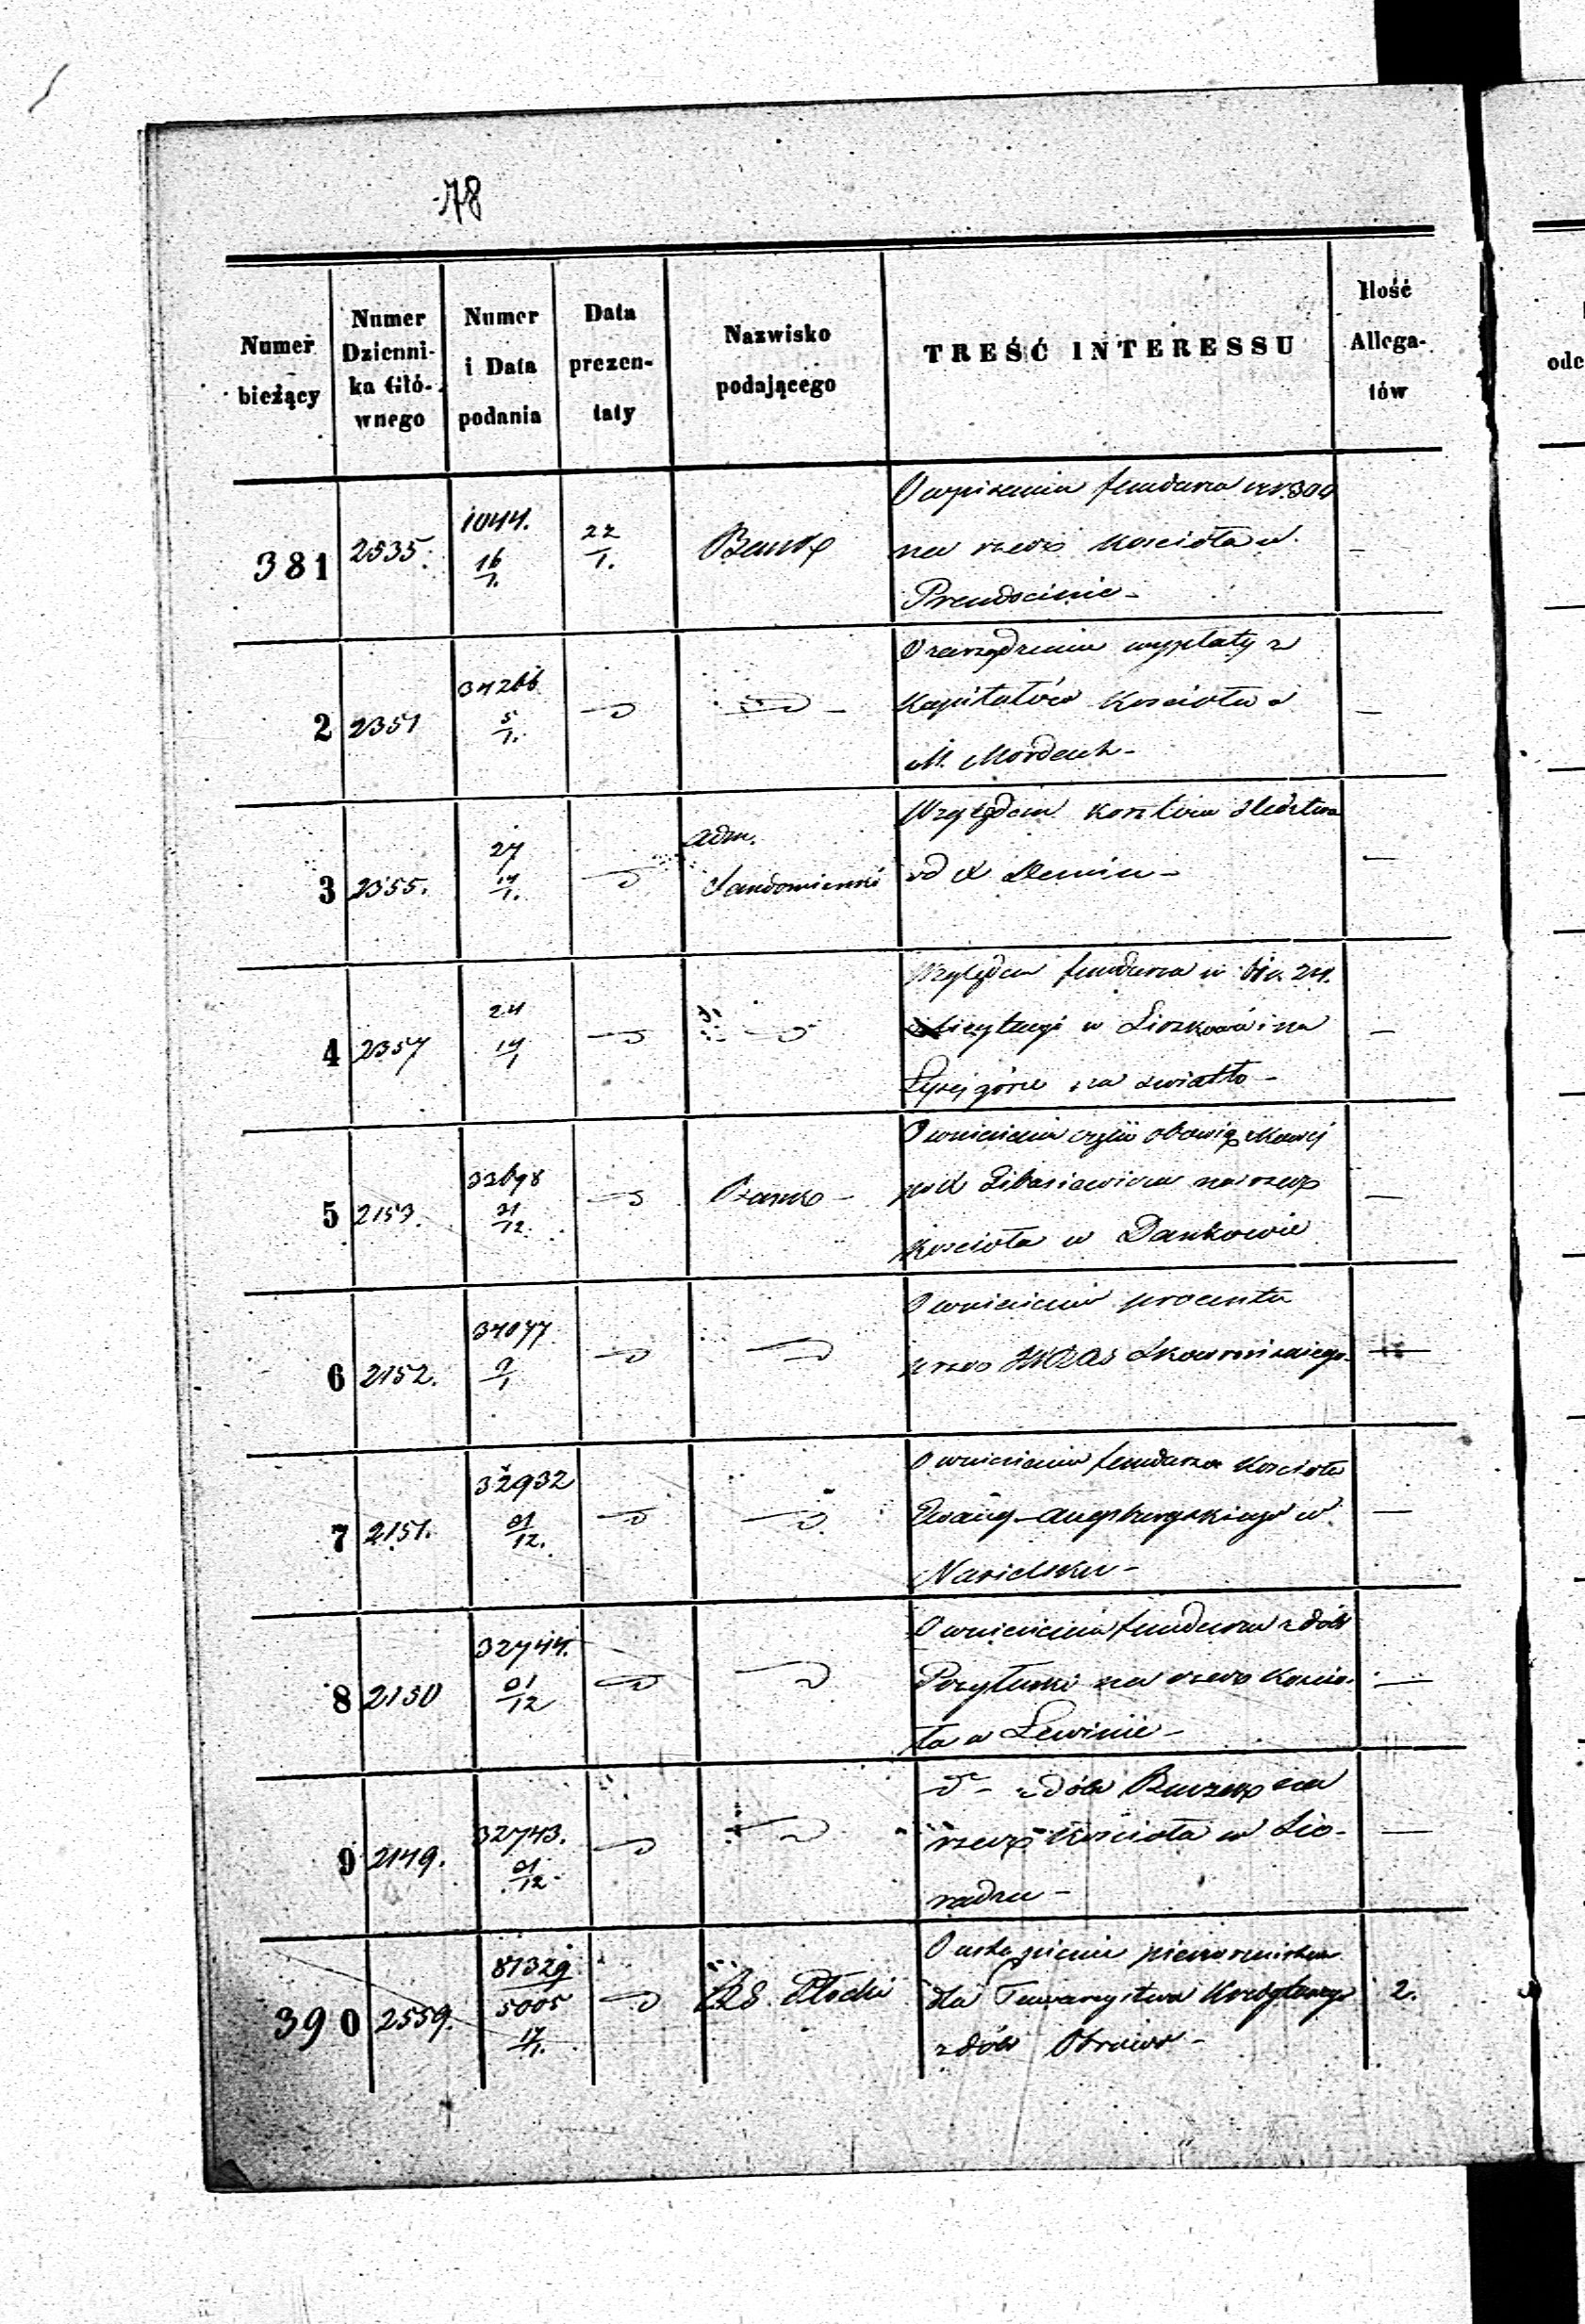 78
Numer bieżący
Numer Dzienni-ka Głó-wnego
Numer i Data podania
Data prezen-taty
Nazwisko podającego
TREŚĆ INTERESSU
Ilość Allega-tów
381
2535.
1044.
16/1.
22/1.
Bank
O wypisaniu funduszu
na rzecz Kościoła w
2
2351
34266
5/1.
O zarządzeniu wypłaty z
Kapitałów Kościoła w
M. Mordach -
3
2355.
27
17/1.
Adm.
Sandomierski
Względem kosztów śledztwa
od X
4
2357
24
17/1
Względem funduszu
w
Łysej górze na światło -
5
2153.
33698
31/12.
Bank -
O wniesieniu obowiązkowej
na rzecz
Kościoła w Dankowie
6
2152.
34077
9/1
O wniesieniu procentu
przez
7
2151.
32932
31/12.
O wniesieniu funduszu Kościoła
Ewang-Augsburgskiego w
Nasielsku -
8
2150
32744.
31/12
O wniesieniu funduszu z dóbr
na rzecz Kościo-
ła w Lewinie -
9
2149.
32743.
31/12.
do - z dóbr na
rzecz Kościoła w Sie-
radzu -
390
2559.
81329
5005
17/1.
Płocki
O ustąpieniu pierwszeństwa
dla Towarzystwa Kredytowego
z dóbr
2.